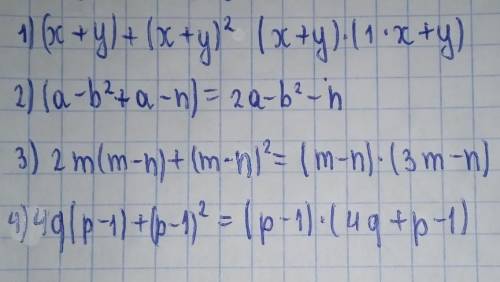 1) (x+y)+(x+y)² (x+y)·(1·x+y)
2) (a-b²+a-n)= 2a-b²-n
3) 2m(m-n)+(m-n)²= (m-n)·(3m-n)
4) 4g(p-1)+(p-1)² = (p-1)·(4g+p-1)